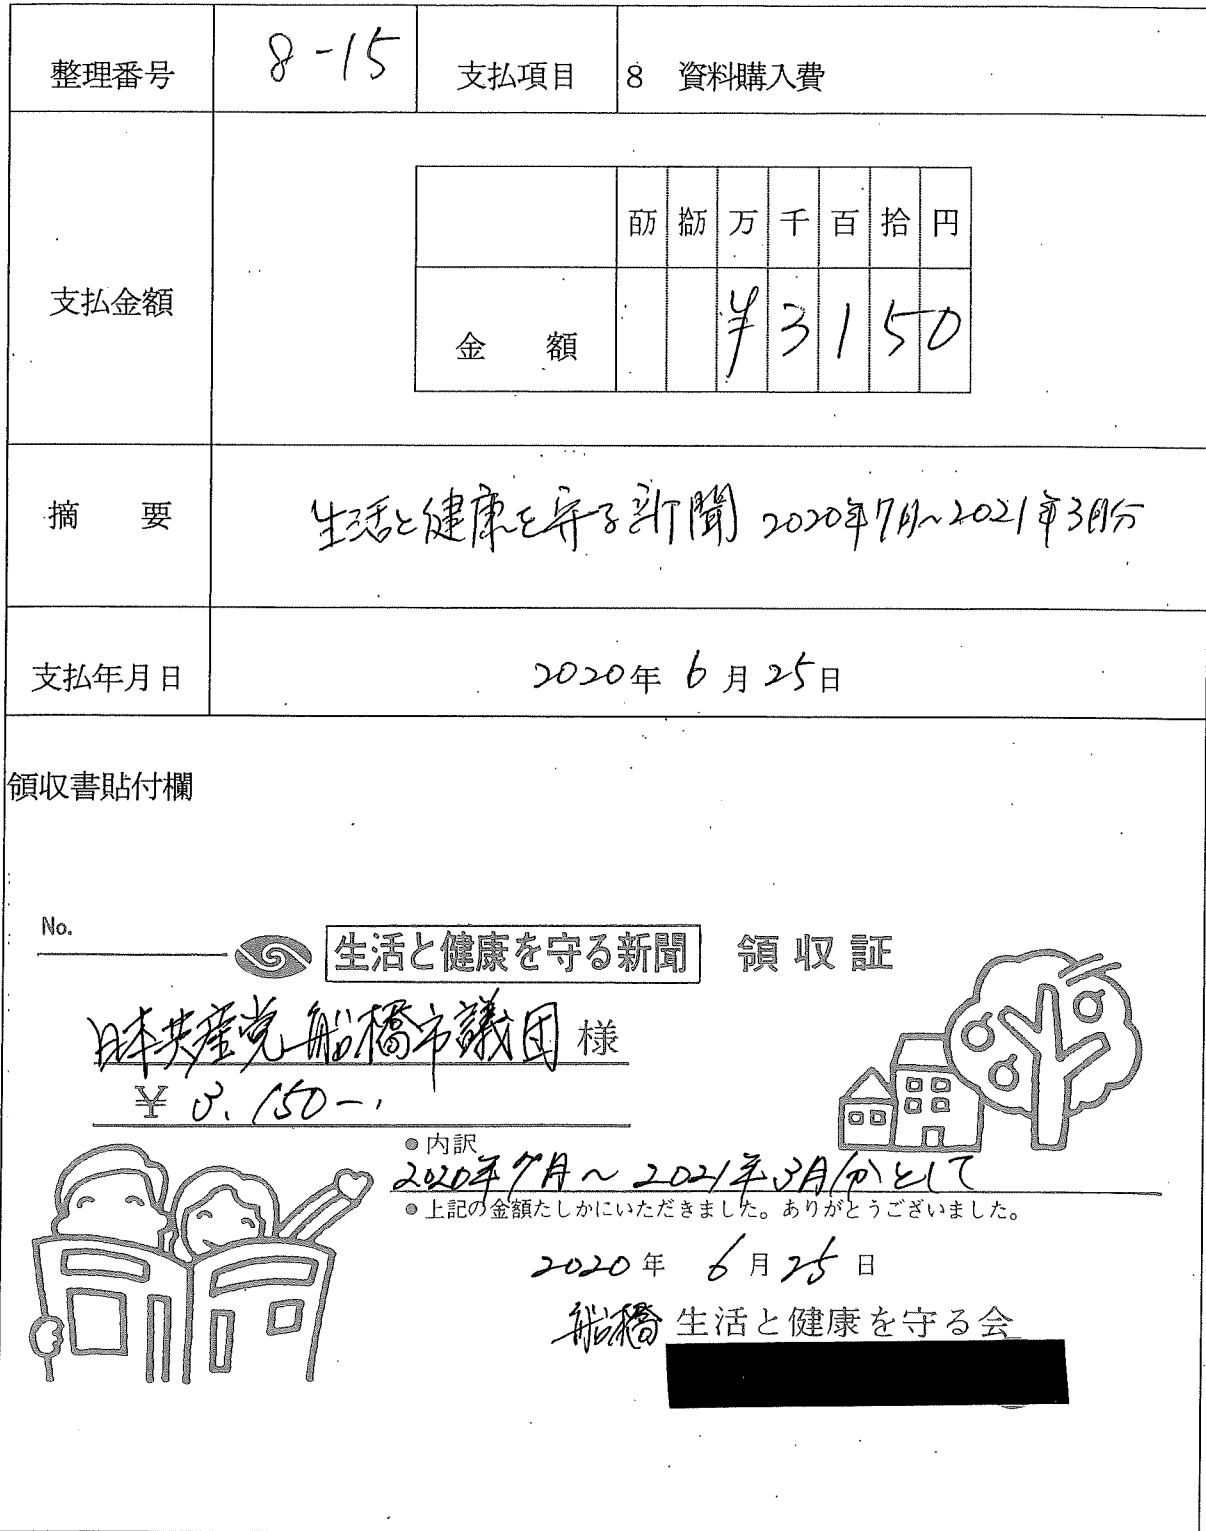 整理番号 8-15 支払項目 8 資料購入費
百万 拾万 万 千 百 拾 円
支払金額
金 額 ¥3150
摘 要 生活と健康を守る新聞 2020年7月~2021年3月分
支払年月日 2020年 6月 25日
領収書貼付欄
No.
生活と健康を守る新聞 領収証
日本共産党 船橋市議団 様
¥ 3,150-
●内訳
2020年7月~2021年3月分として
●上記の金額たしかにいただきました。ありがとうございました。
2020年 6月 25日
船橋 生活と健康を守る会